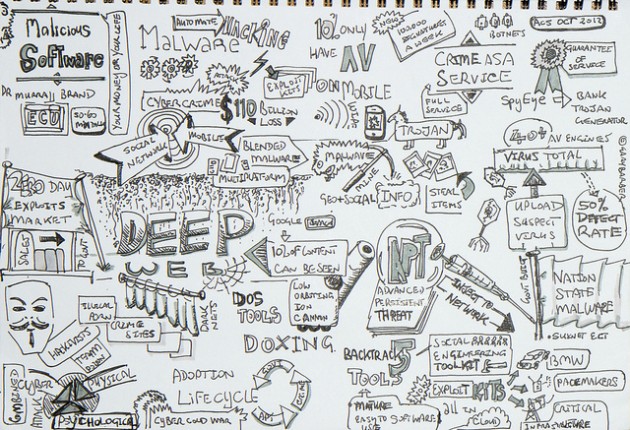 Malicious
Software
DR MURRAY BRAND
ECU
YOUR MONEY OR YOUR LIFE
AUTOMATE
HACKING
MALWARE
CYBERCRIME
EXPLOIT KITS
$110 BILLION
LOSS
10% ONLY
HAVE
AV
ON MOBILE
10,000
SIGNATURES
A WEEK
BOTNETS
CRIME AS A
SERVICE
FULL
SERVICE
AC5 OCT 2012
GUARANTEE
OF
SERVICE
SPYEYE
BANK
TROJAN
GENERATOR
SOCIAL
NETWORK
MOBILE
BLENDED
MALWARE
MULTIPLATFORM
MALWARE
MINE
TROJAN
GEO+SOCIAL
INFO
STEAL
ITEMS
40+
AV ENGINES
VIRUS TOTAL
UPLOAD
SUSPECT
VIRUS
50%
DEFECT
RATE
DAY
EXPLOITS
MARKET
SALES
DEEP
WEB
DARK
NETS
GOOGLE
10% OF CONTENT
CAN BE SEEN
DOS
TOOLS
LOW
ORBITING
ION
CANNON
APT
ADVANCED
PERSISTENT
THREAT
INJECT TO
NETWORK
GOVT BUILT
NATION
STATE
MALWARE
ILLEGAL
PORN
CRIME
SITES
HACKTIVISTS
DOXING
BACKTRACK 5
TOOLS
SOCIAL
ENGINEERING
TOOLKIT
EXPLOIT KITS
BMW
PACEMAKERS
CRITICAL
INFRASTRUCTURE
CYBER
ATTACK
PHYSICAL
PSYCHOLOGICAL
ADOPTION
LIFECYCLE
CYBER COLD WAR
MATURE
EASY TO
SOFTWARE
USE
ALL IN
CLOUD